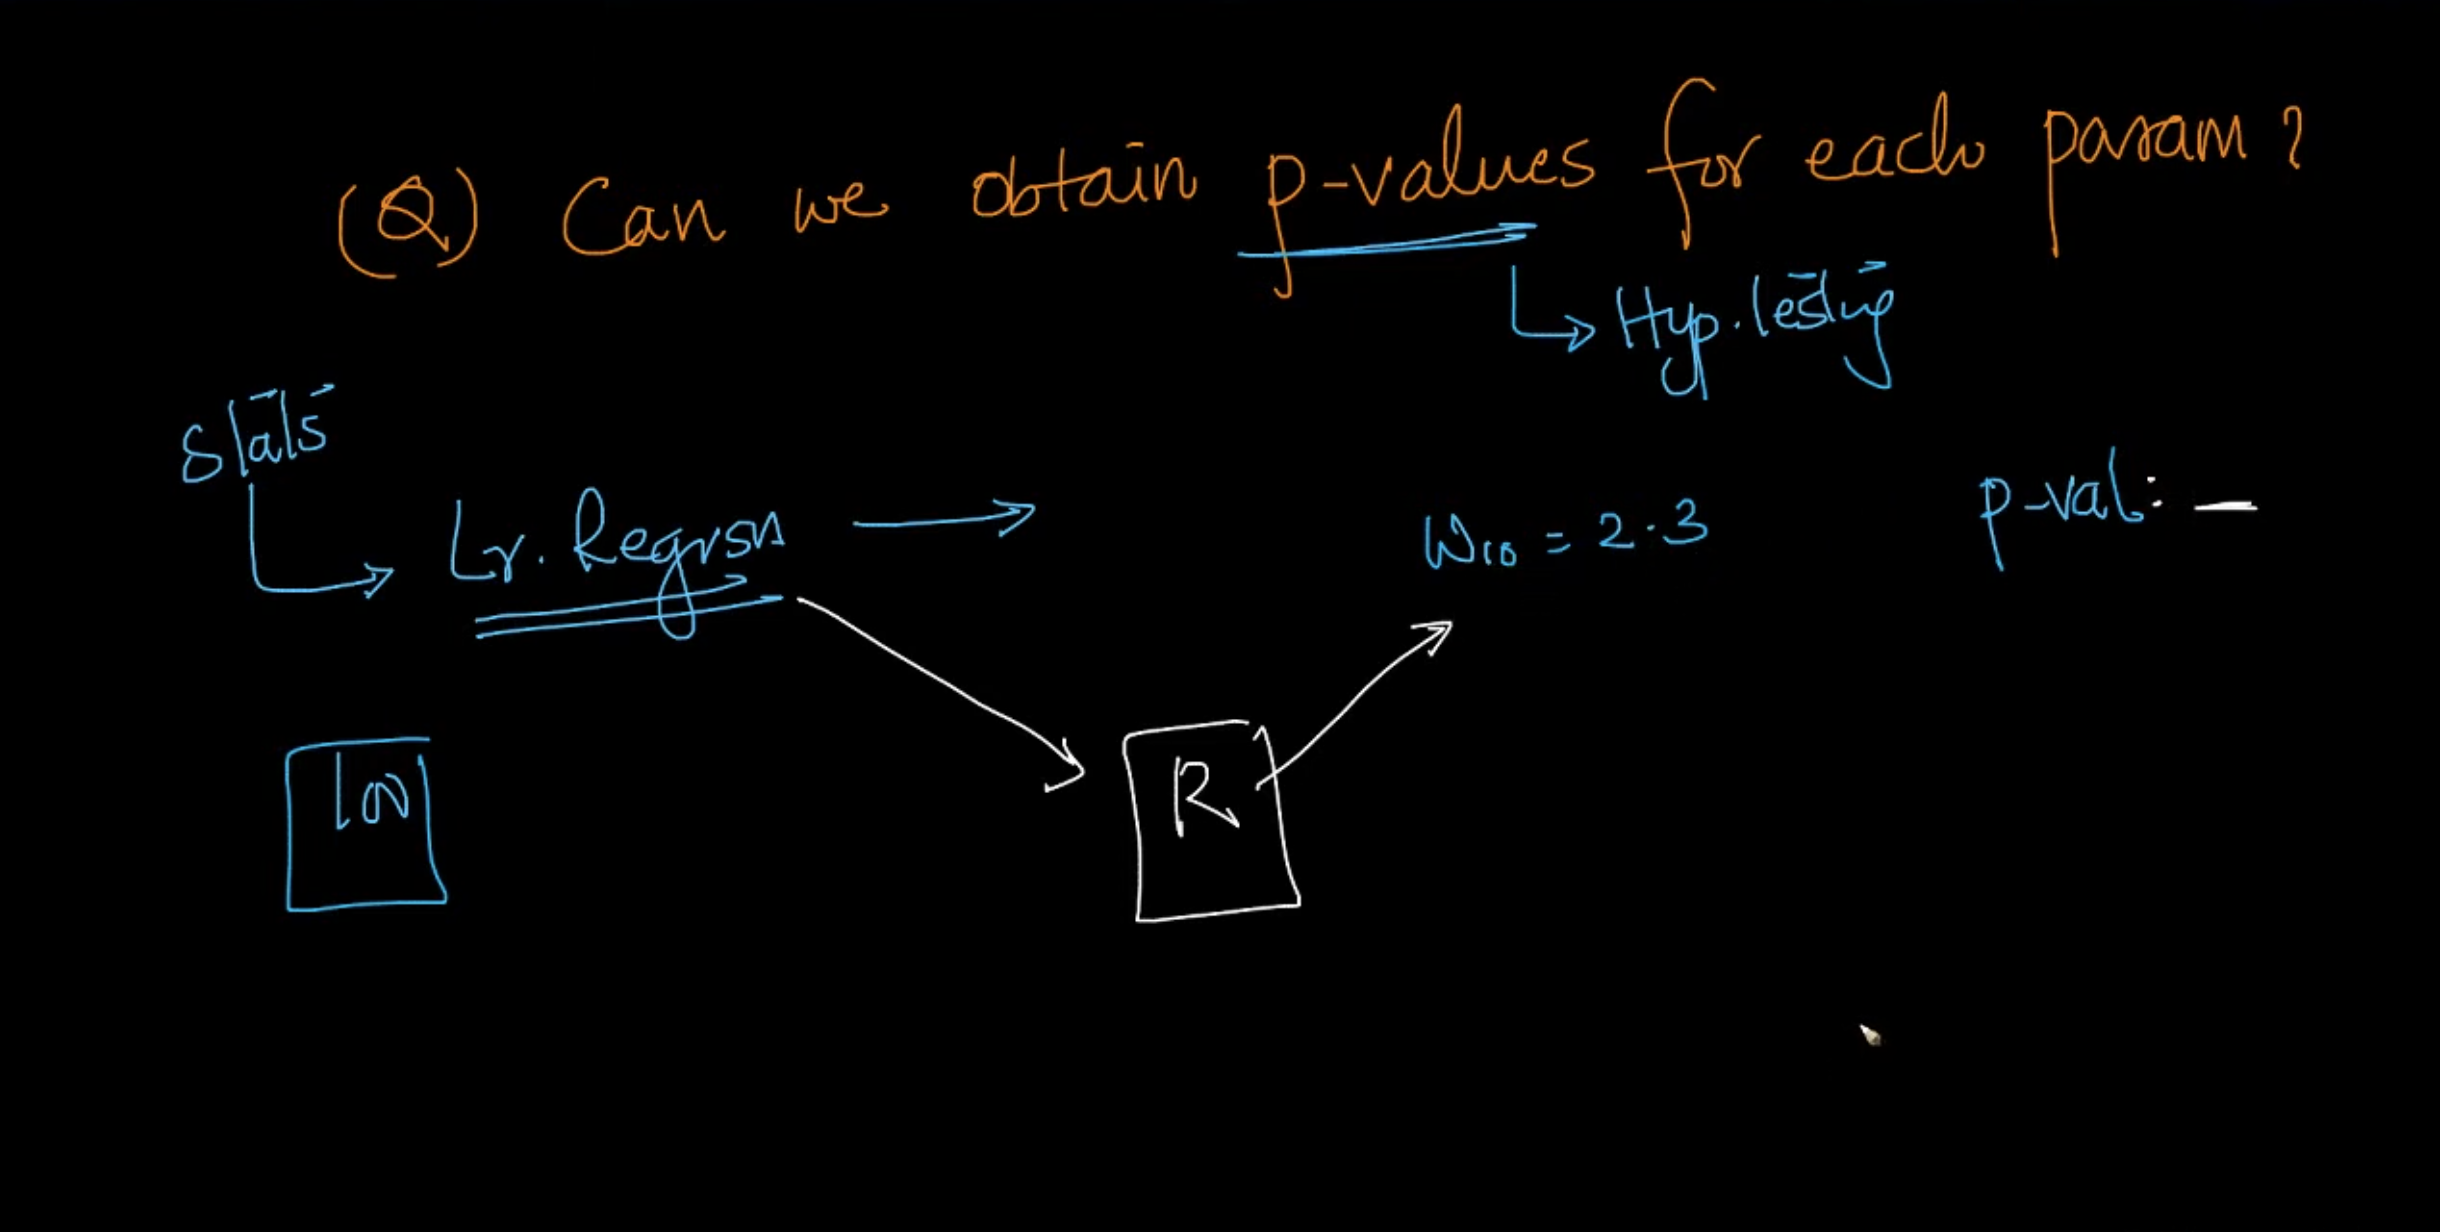 (Q) Can we obtain p-values for each param?
Hyp. testing
stats
Lr. Regrsn
w10 = 2.3
p-val: —
R